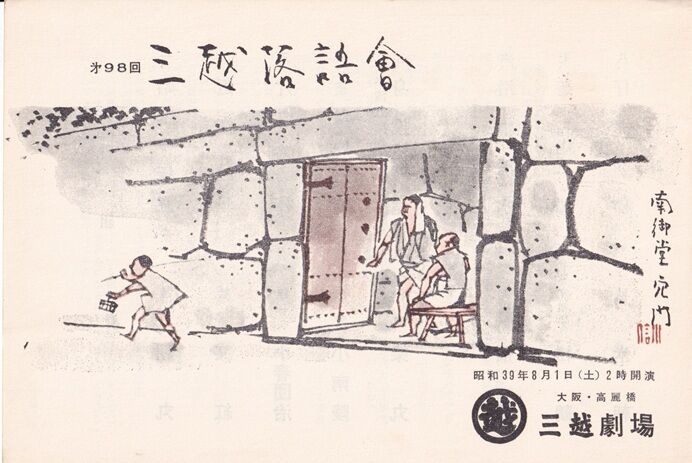 第98回 三越落語會
南御堂穴門
昭和39年8月1日(土)2時開演
大阪・高麗橋
越
三越劇場